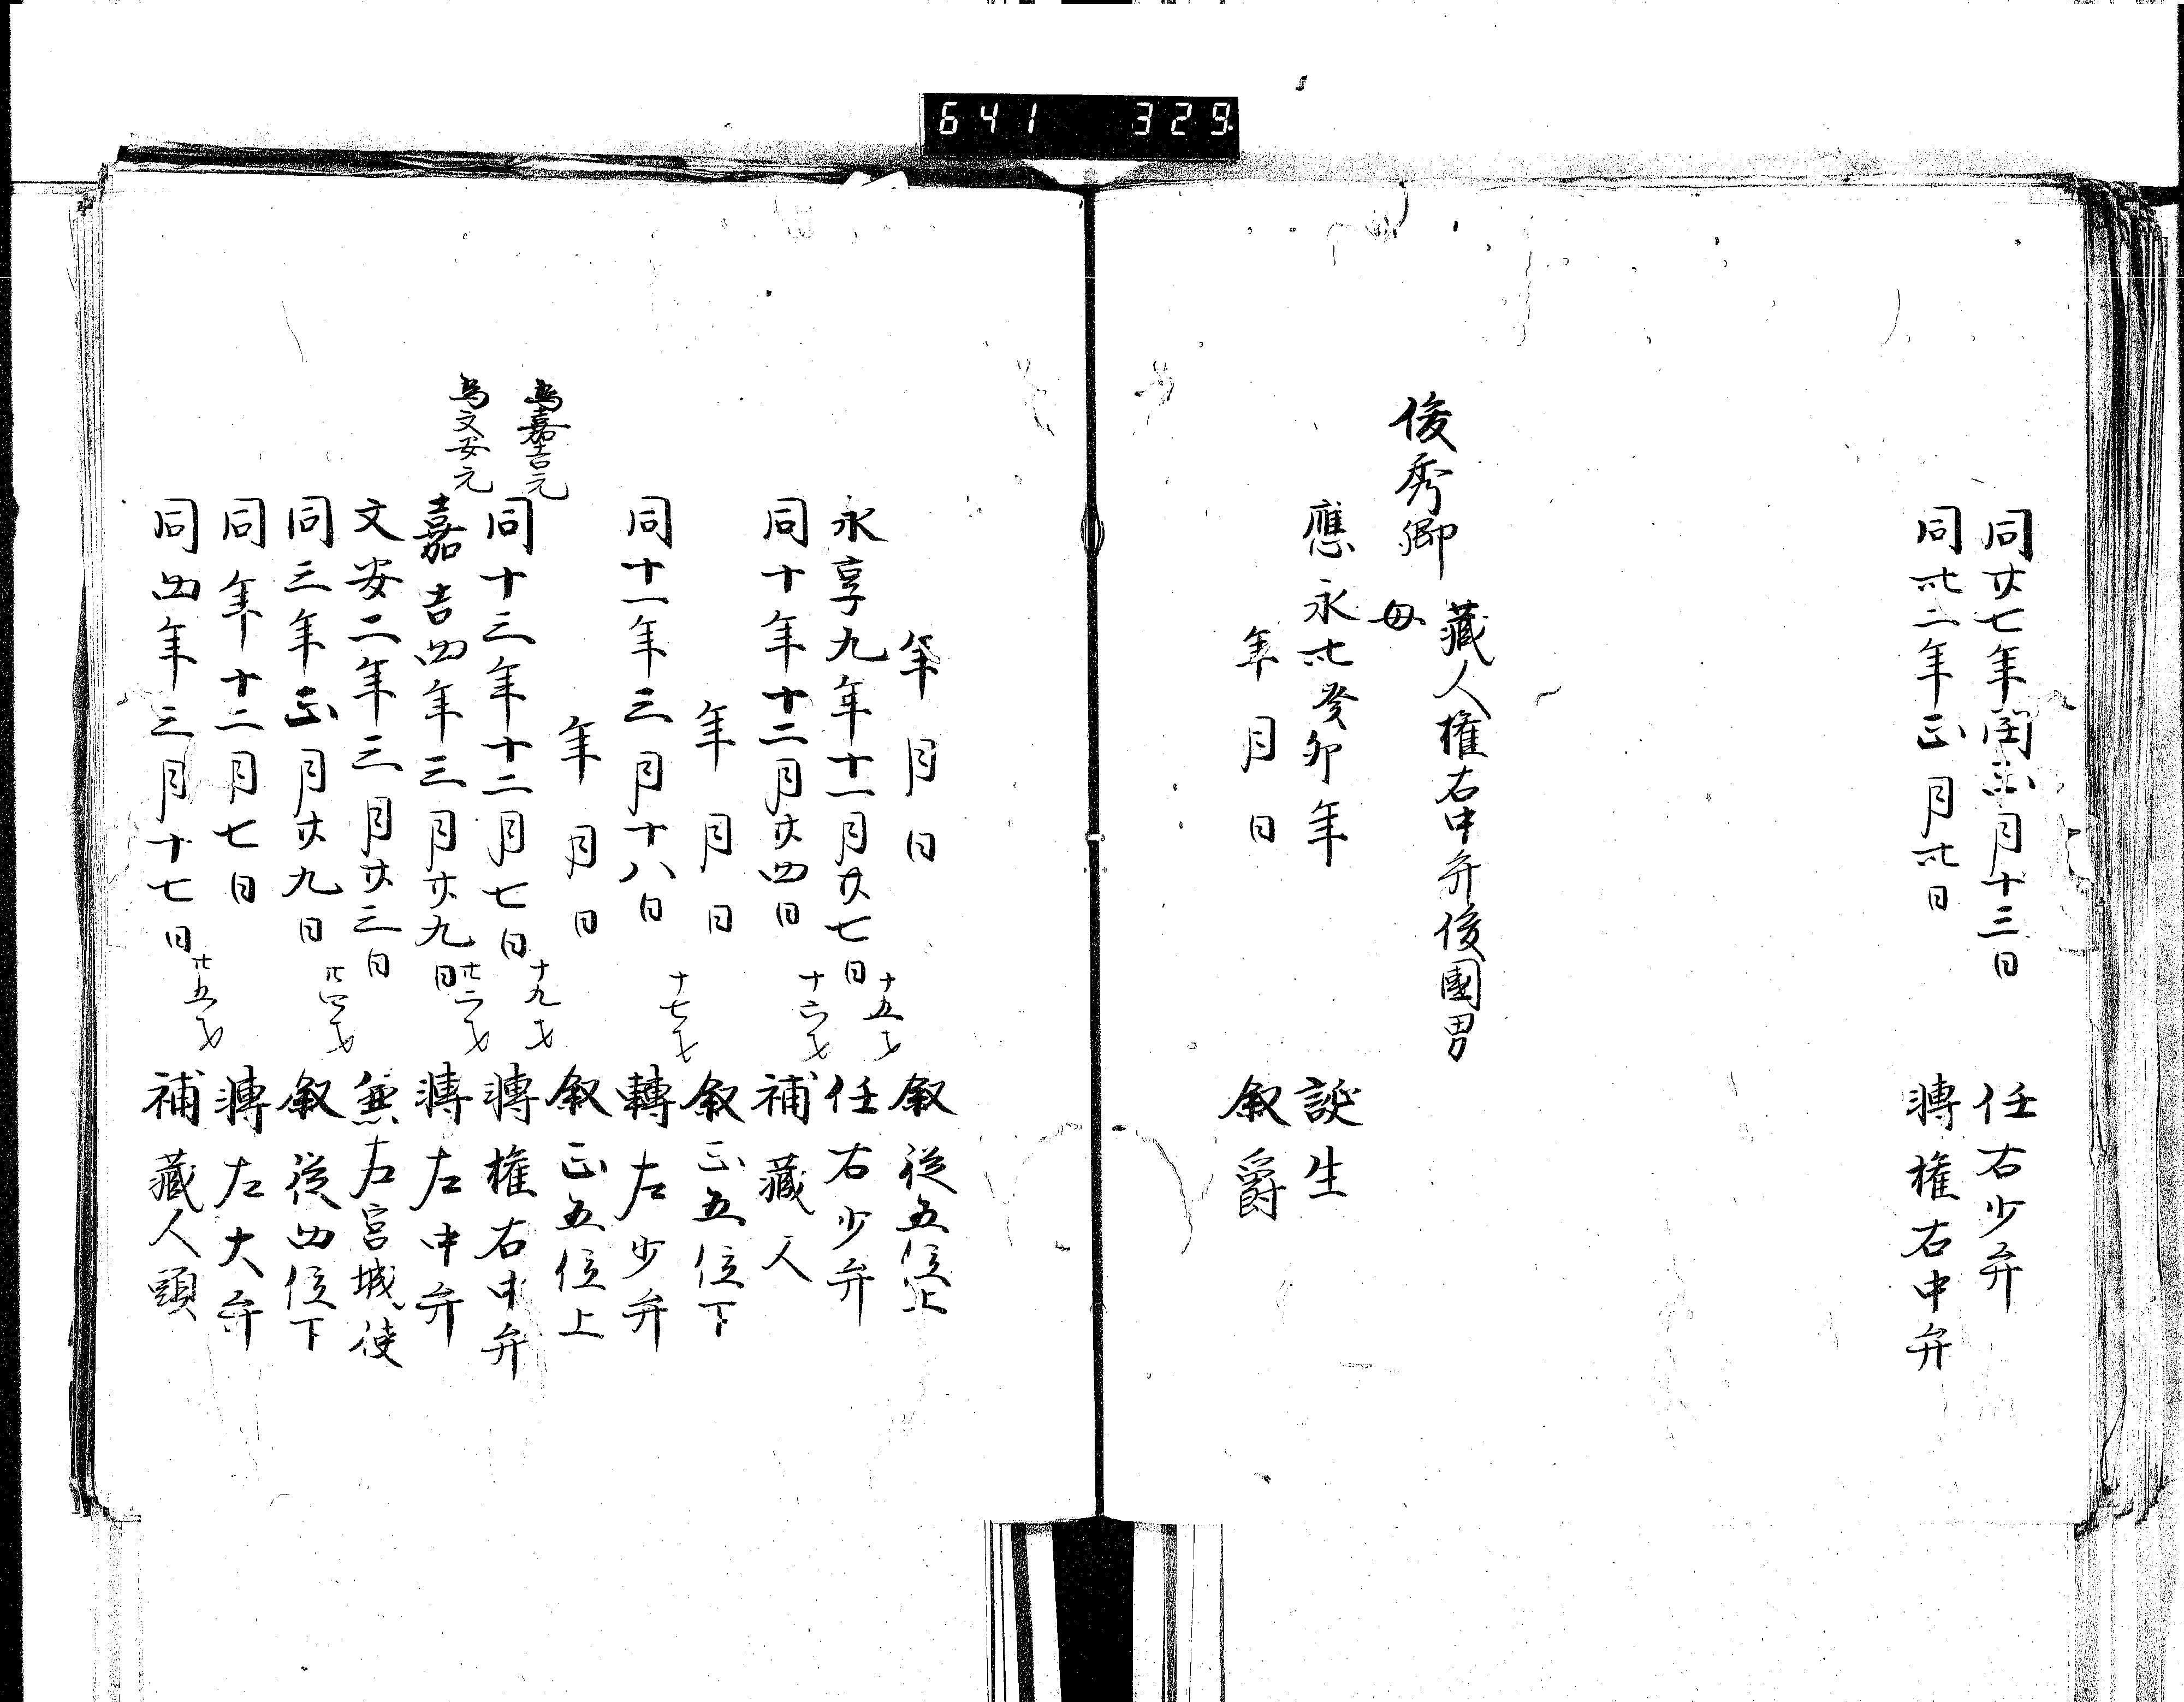 641 329
同廿七年閏正月十三日 任右少弁
同卅二年正月卅日 轉權右中弁
俊秀卿 藏人權右中弁俊國男
母
應永卅癸卯年 誕生
年月日 叙爵
年月日 叙從五位上
永享九年十一月廿七日 十五才 任右少弁
同十年十二月廿四日 十六才 補藏人
年月日 叙正五位下
同十一年三月十八日 十七才 轉左少弁
年月日 叙正五位上
為嘉吉元
同十三年十二月七日 十九才 轉權右中弁
為文安元
嘉吉四年三月廿九日 廿二才 轉左中弁
文安二年三月廿三日 兼左宮城使
同三年正月廿九日 廿四才 叙從四位下
同年十二月七日 轉左大弁
同四年三月十七日 廿五才 補藏人頭